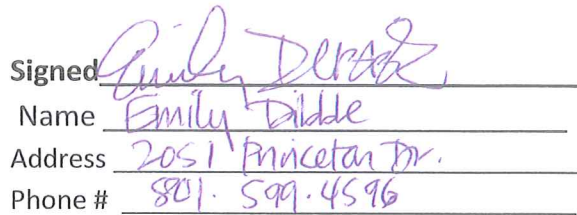 Signed Emily
Name Emily Dibble
Address 2051 Princeton Dr.
Phone # 801. 599.4596